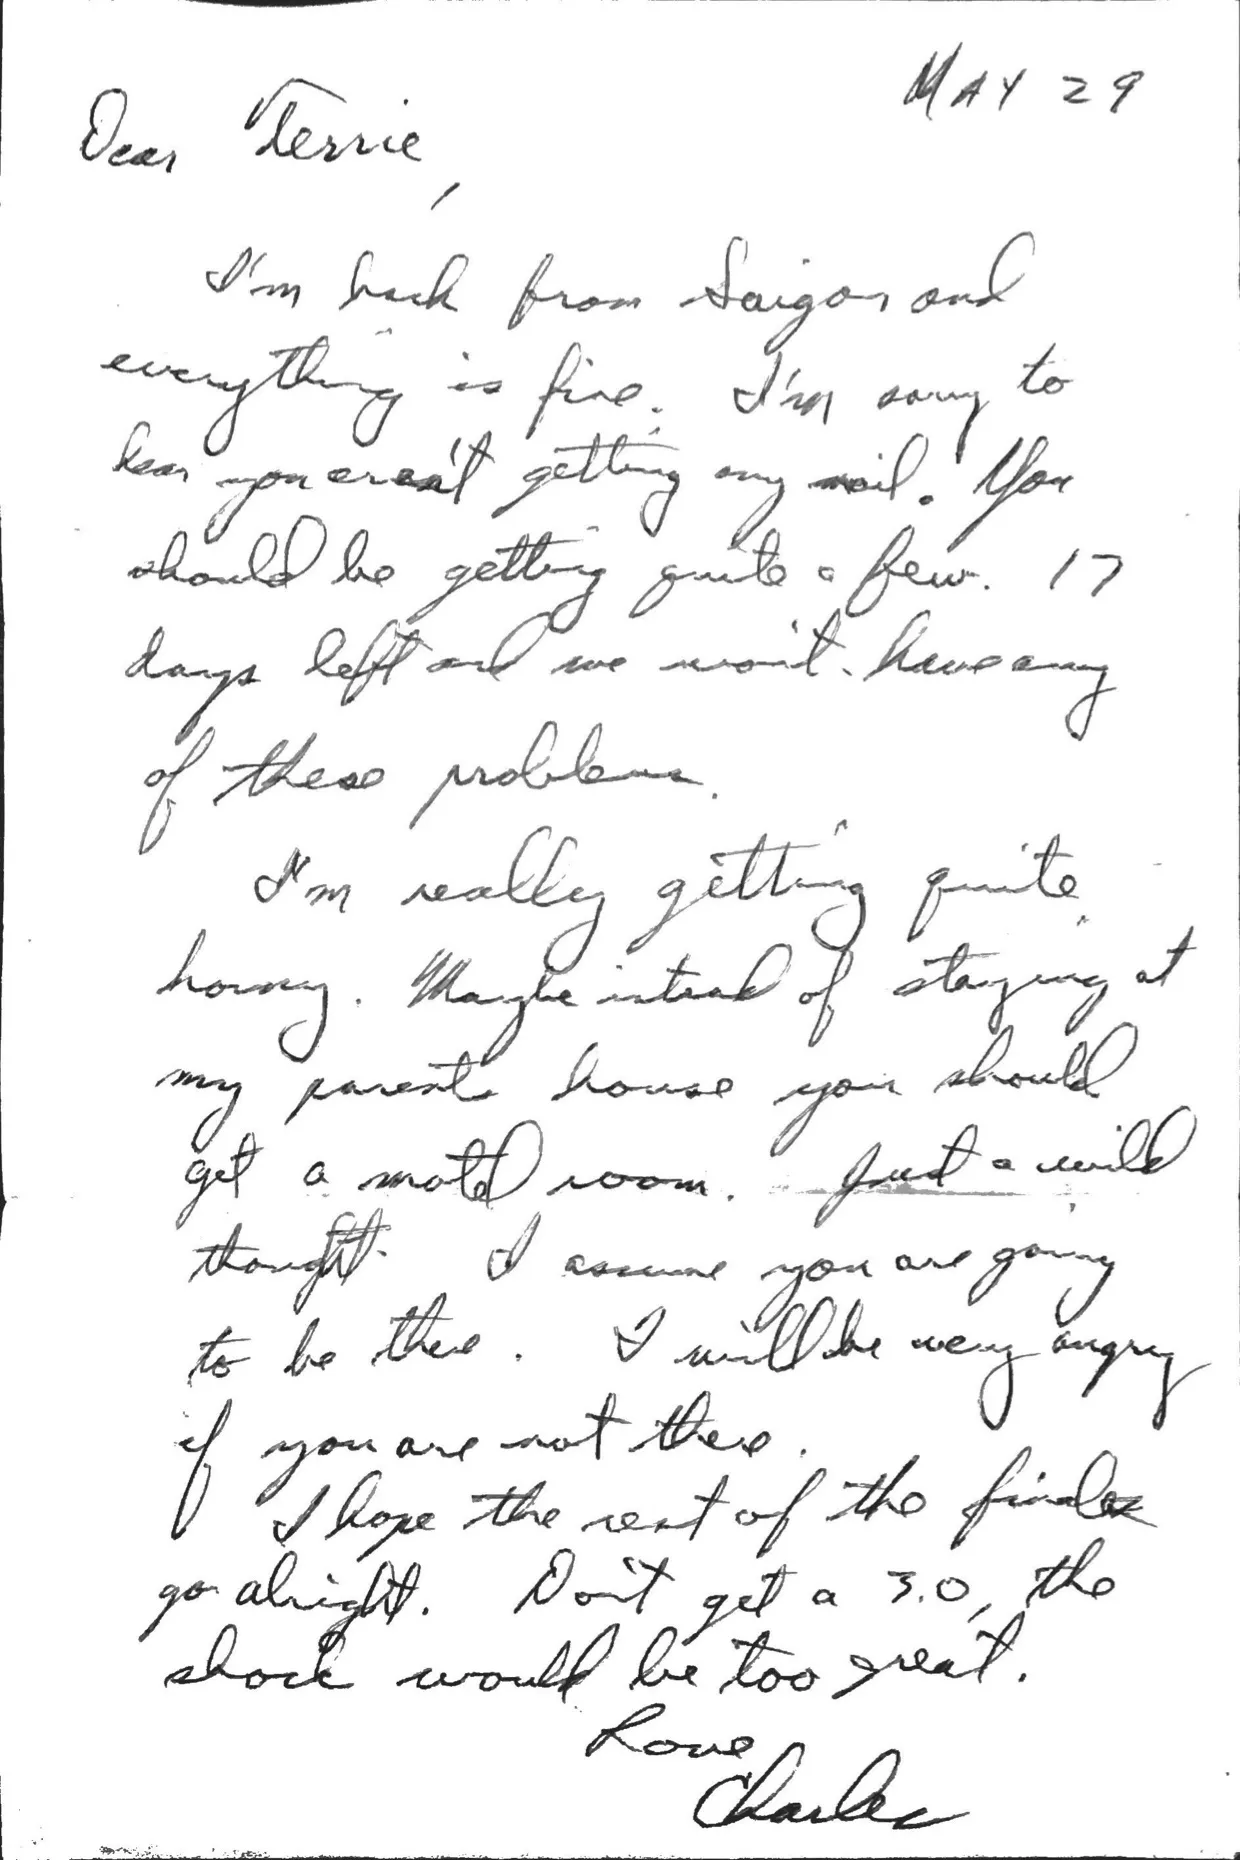 MAY 29
Dear Terrie,
I'm back from Saigon and
everything is fine. I'm sorry to
hear you aren't getting any mail. You
should be getting quite a few. 17
days left and we won't have any
of these problems.
I'm really getting quite
horny. Maybe intead of staying at
my parents house you should
get a motel room. Just a wild
thought. I assume you are going
to be there. I will be very angry
if you are not there.
I hope the rest of the finales
go alright. Don't get a 3.0, the
shock would be too great.
Love
Charles